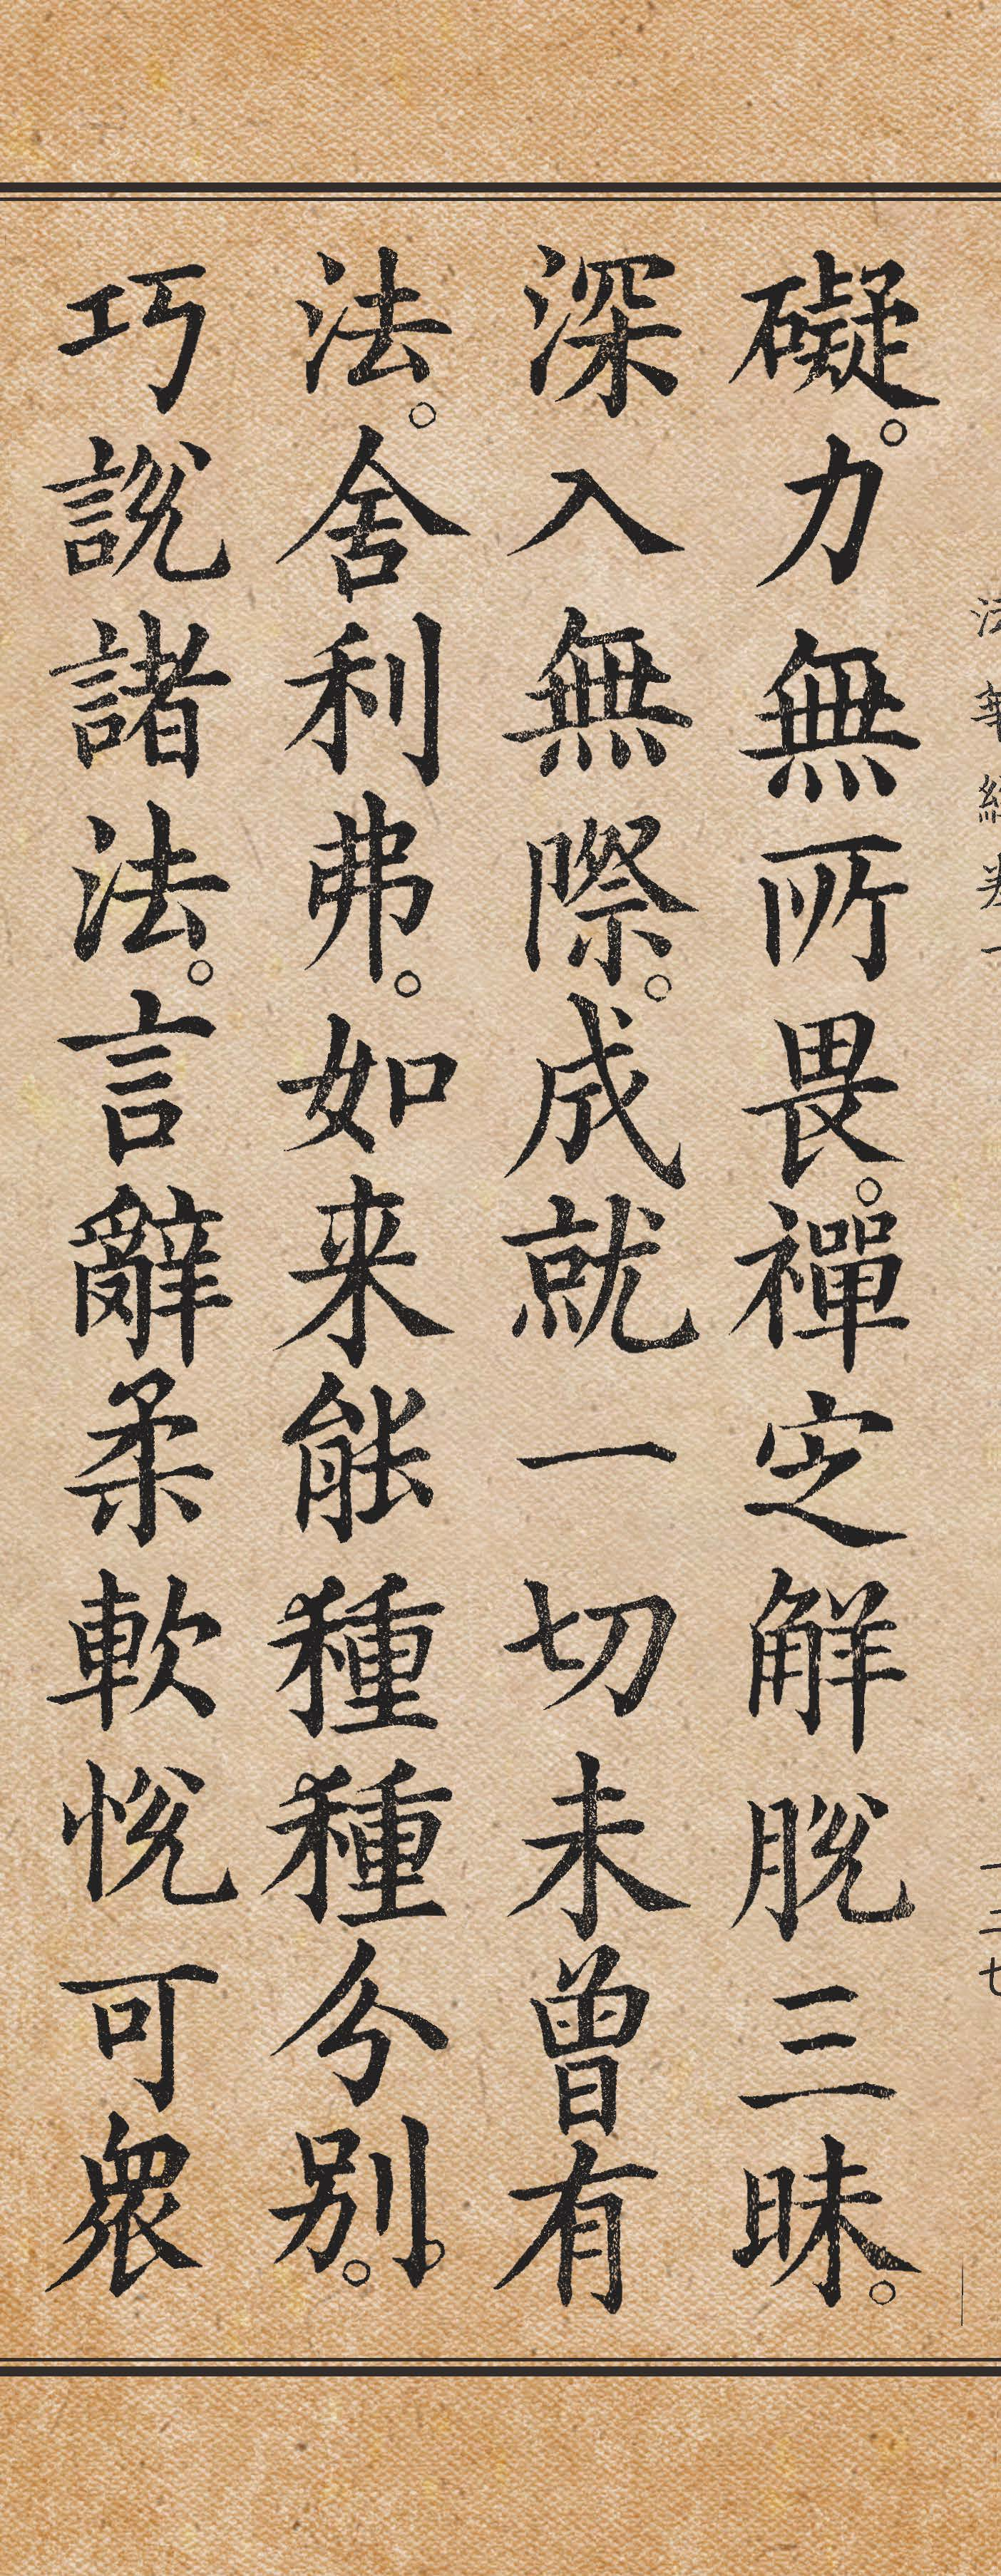 法華經卷一
一二七
礙。力無所畏。禪定解脫三昧。
深入無際。成就一切未曾有
法。舍利弗。如来能種種分別。
巧說諸法。言辭柔軟悅可衆